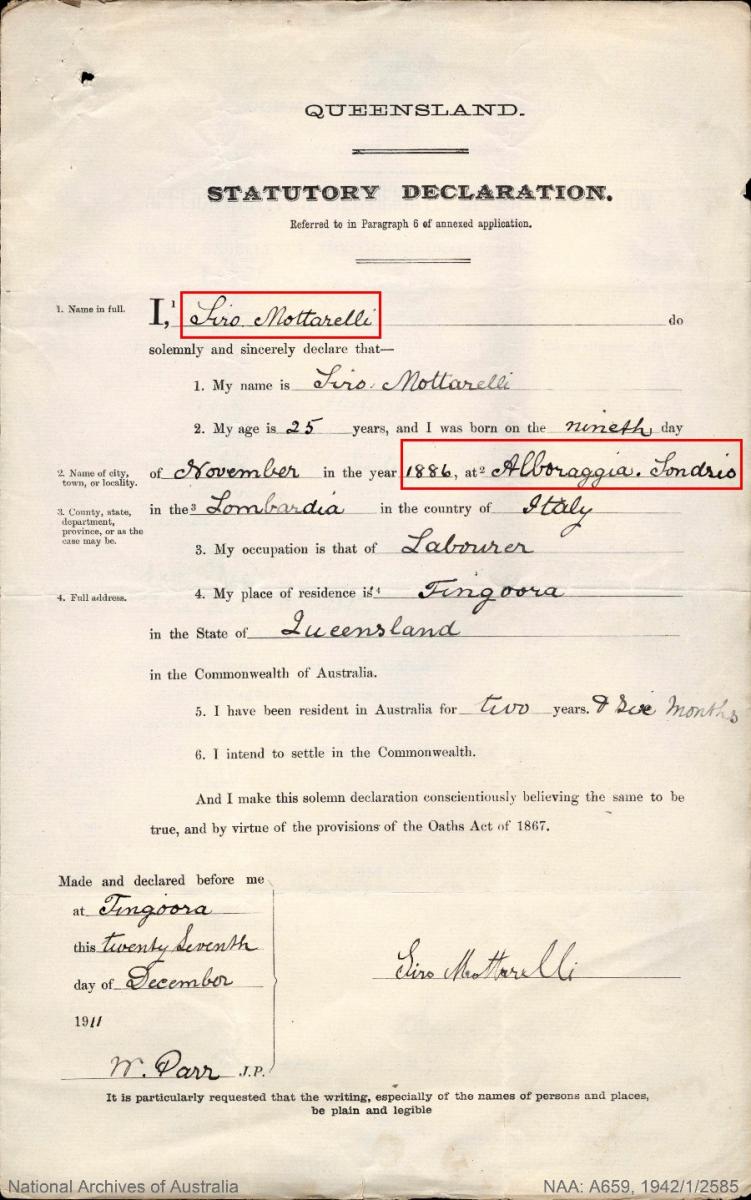 QUEENSLAND.
STATUTORY DECLARATION.
Referred to in Paragraph 6 of annexed application.
1. Name in full.
I,¹ Siro Mottarelli do
solemnly and sincerely declare that—
1. My name is Siro Mottarelli
2. My age is 25 years, and I was born on the nineth day
2. Name of city, town, or locality.
of November in the year 1886, at² Alboraggia. Sondrio
3. County, state, department, province, or as the case may be.
in the³ Lombardia in the country of Italy
3. My occupation is that of Labourer
4. Full address.
4. My place of residence is⁴ Tingoora
in the State of Queensland
in the Commonwealth of Australia.
5. I have been resident in Australia for two years. & Six Months
6. I intend to settle in the Commonwealth.
And I make this solemn declaration conscientiously believing the same to be
true, and by virtue of the provisions of the Oaths Act of 1867.
Made and declared before me
at Tingoora
this twenty Seventh
day of December
1911
Siro Mottarelli
W. Parr J.P.
It is particularly requested that the writing, especially of the names of persons and places,
be plain and legible
National Archives of Australia
NAA: A659, 1942/1/2585